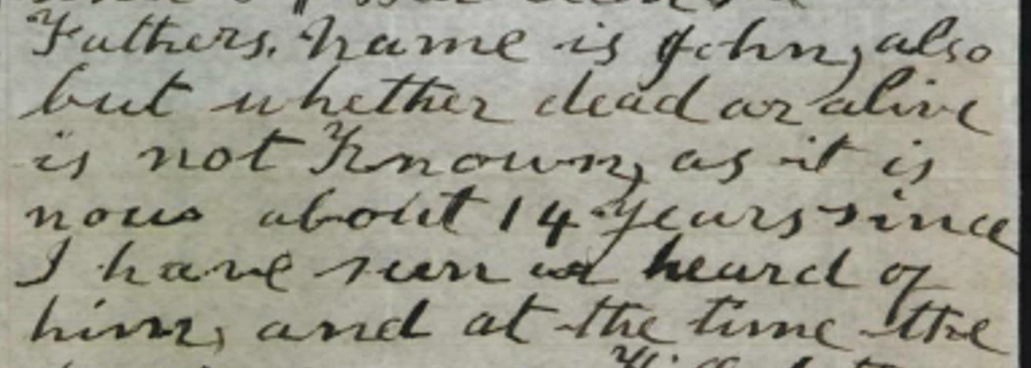 Fathers. name is John, also
but whether dead or alive
is not Known, as it is
now about 14 years since
I have seen or heard of
him, and at the time the